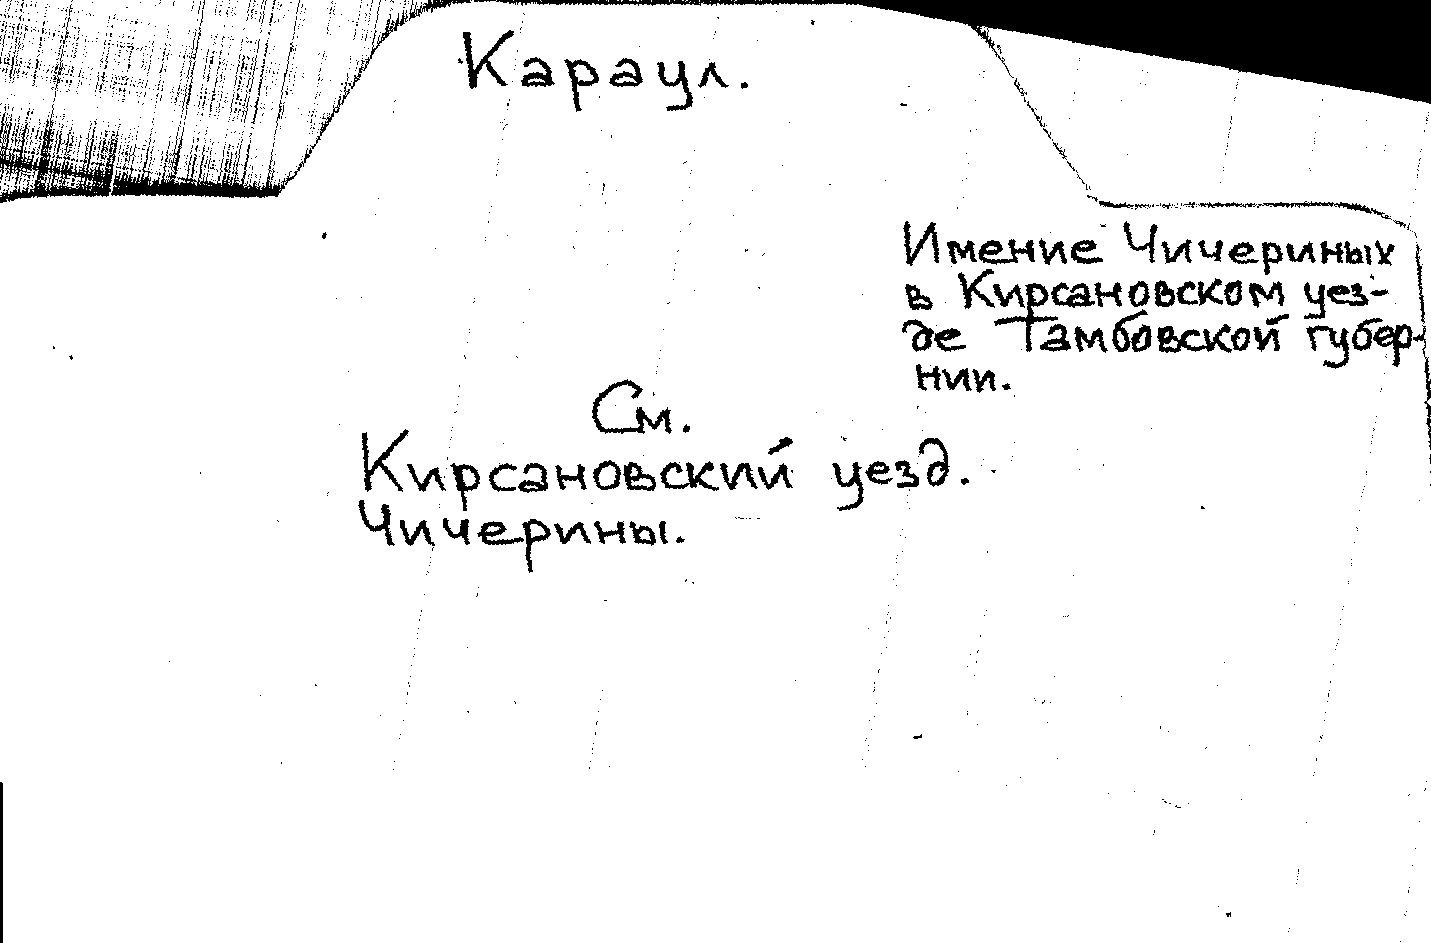 Караул.
Имение Чичериных
в Кирсановском уез-
де Тамбовской губер-
нии.
См.
Кирсановский уезд.
Чичерины.